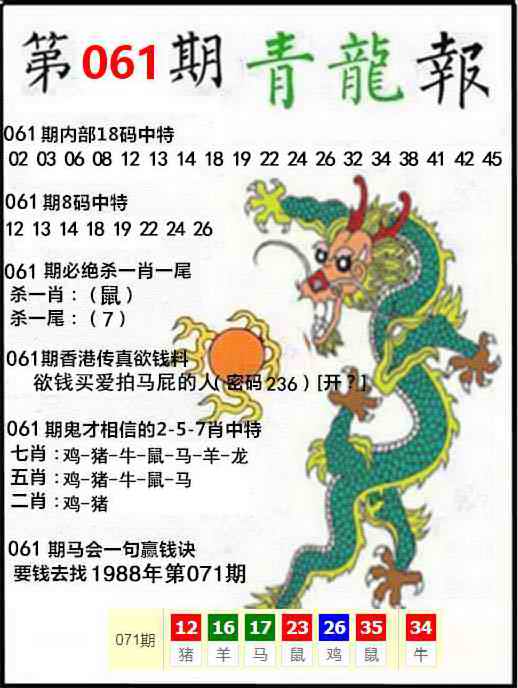 第061期青龍報
061期内部18码中特
02 03 06 08 12 13 14 18 19 22 24 26 32 34 38 41 42 45
061期8码中特
12 13 14 18 19 22 24 26
061 期必绝杀一肖一尾
杀一肖：（鼠）
杀一尾：（7）
061期香港传真欲钱料
欲钱买爱拍马屁的人（密码236）[开？]
061期鬼才相信的2-5-7肖中特
七肖：鸡-猪-牛-鼠-马-羊-龙
五肖：鸡-猪-牛-鼠-马
二肖：鸡-猪
061 期马会一句赢钱诀
要钱去找1988年第071期
071期 12 16 17 23 26 35 34
猪 羊 马 鼠 鸡 鼠 牛